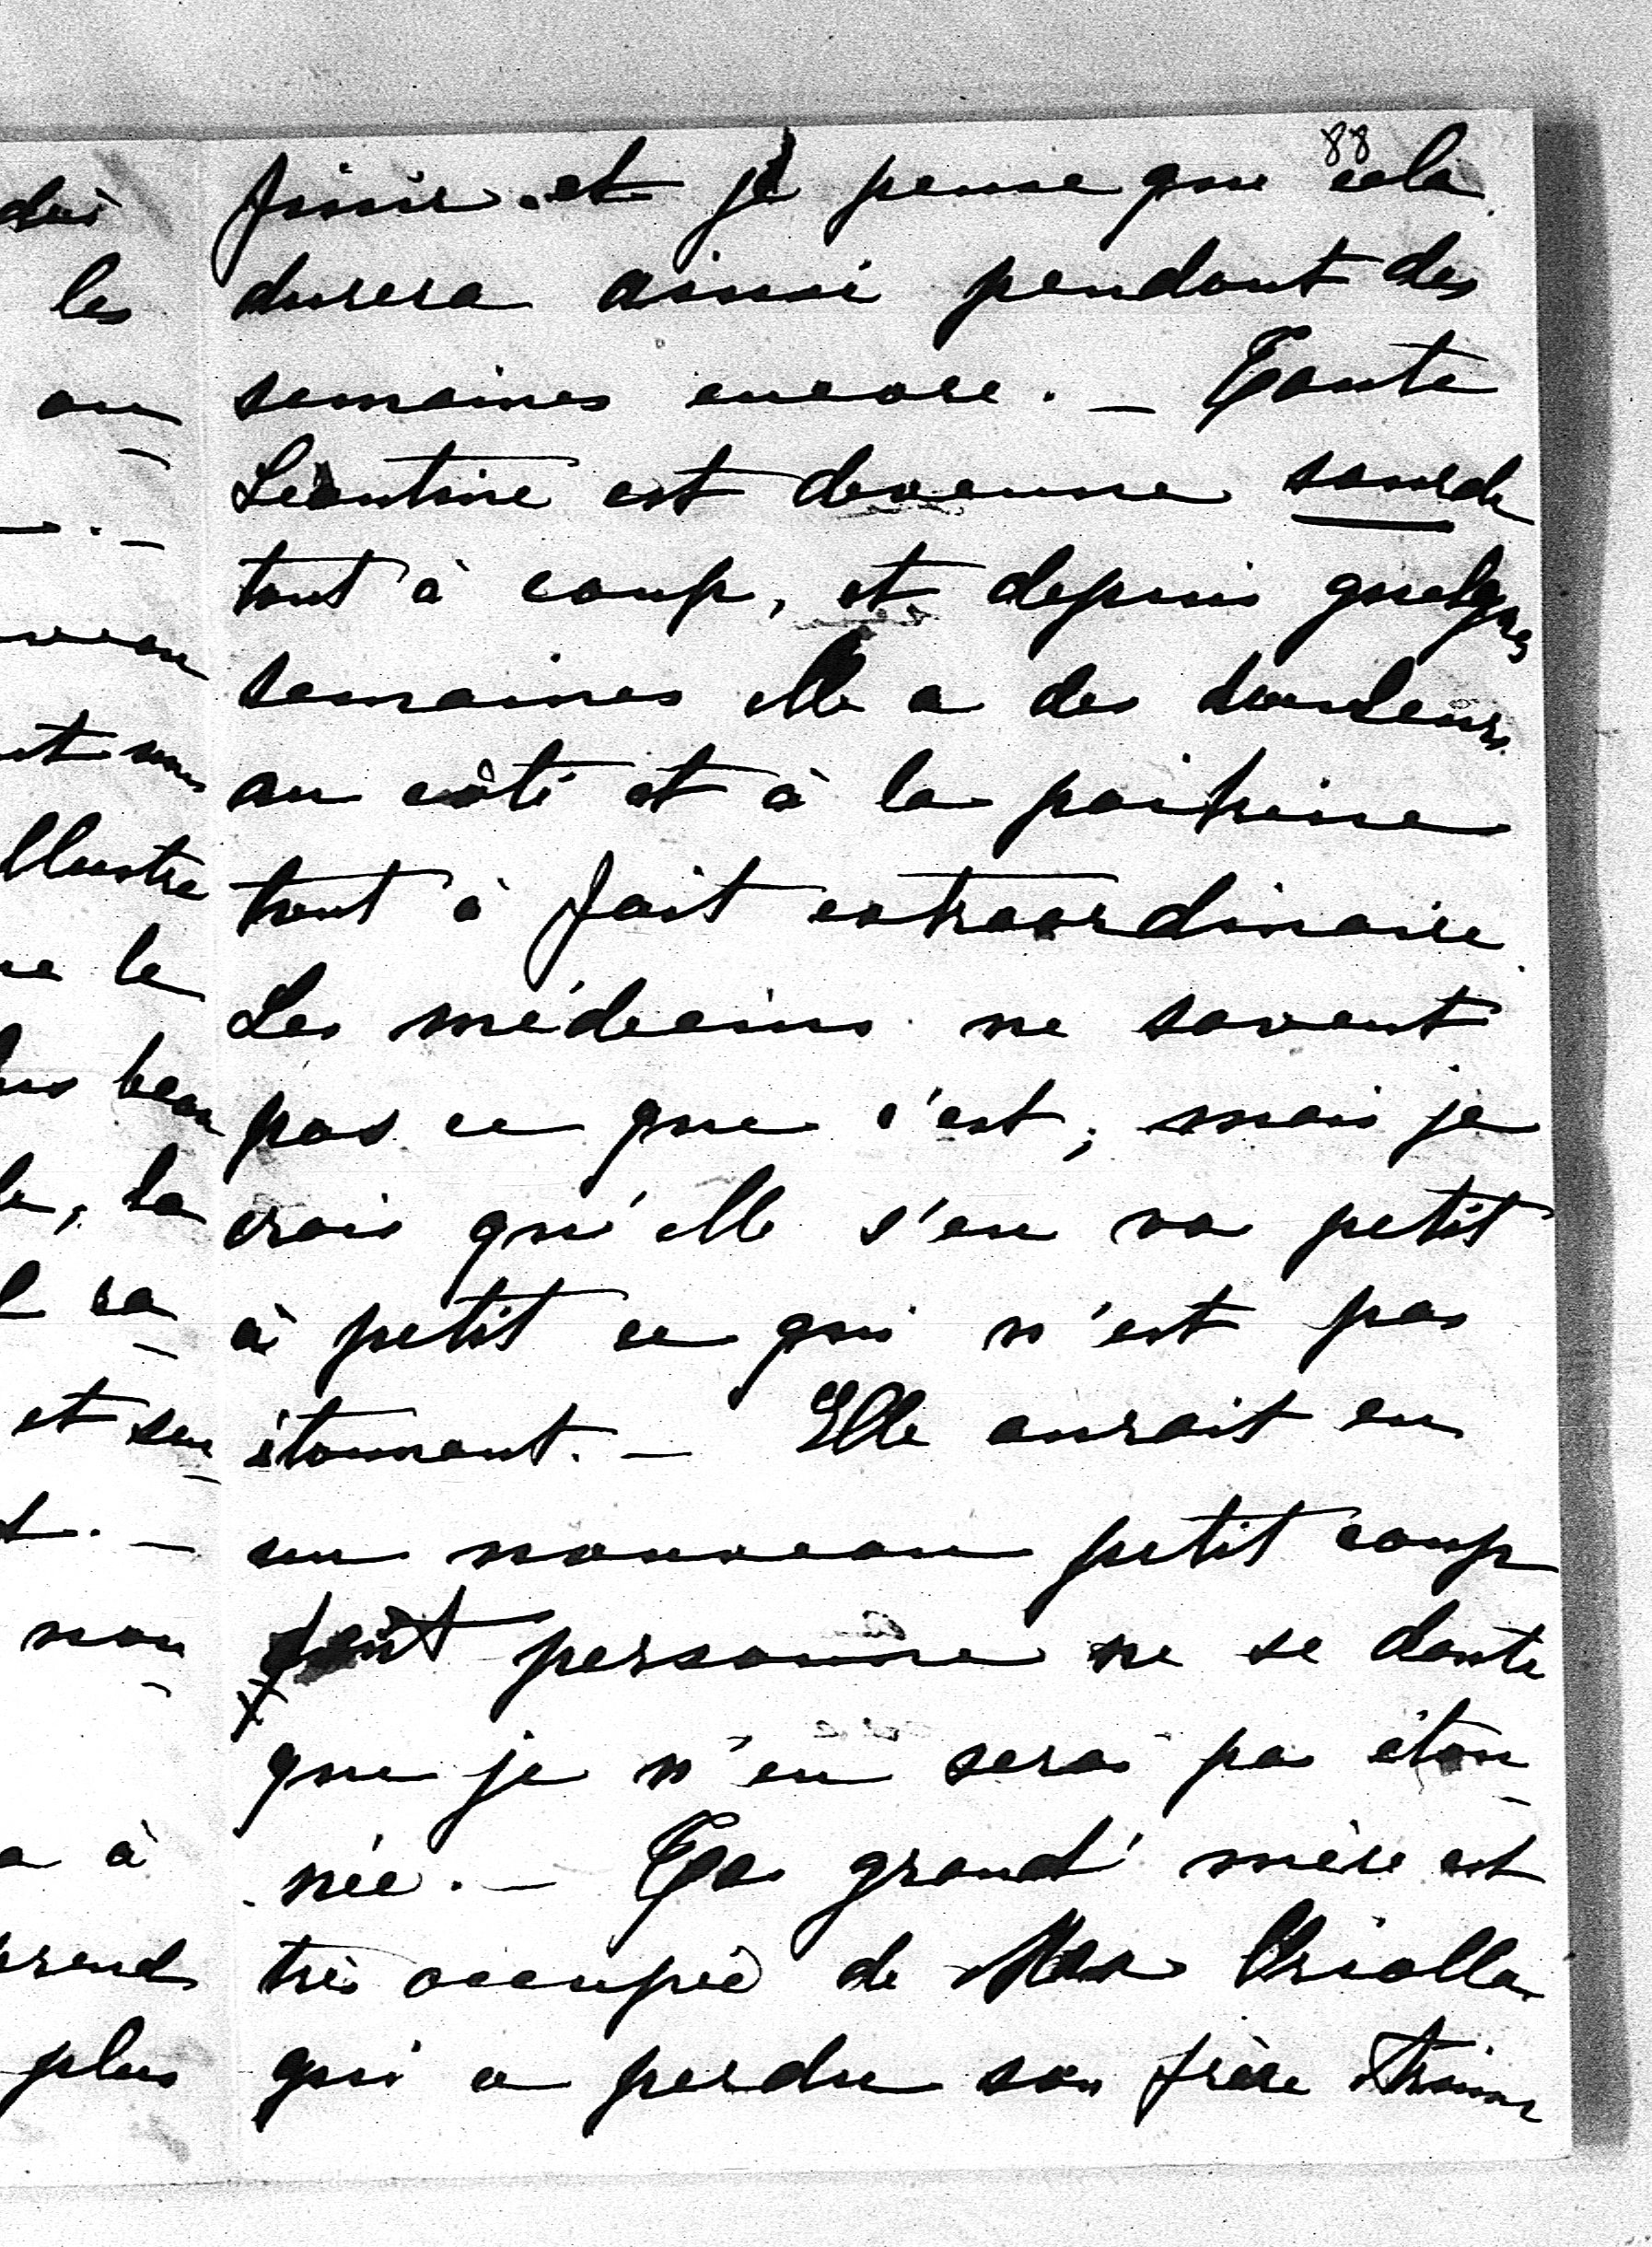 88
finir et je pense que cela
durera ainsi pendant des
semaines encore. — Tante
Léontine est devenue sourde
tout à coup, et depuis quelques
semaines elle a des douleurs
au côté et à la poitrine
tout à fait extraordinaire.
Les médecins ne savent
pas ce que c'est, mais je
crois qu'elle s'en va petit
à petit ce qui n'est pas
étonnant. — Elle aurait eu
un nouveau petit coup
dont personne ne se doute
que je n'en serai pas éton-
née. — Ta grand'mère est
très occupée de
qui a perdu son frère
les
ou-
et
le
beau
la
sa-
et son-
non-
à
plus